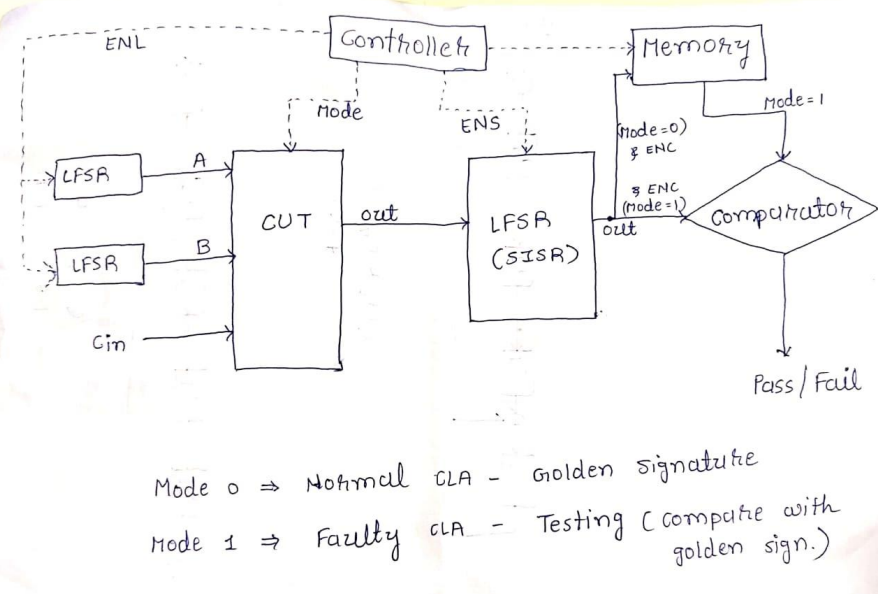 ENL
Controller
Memory
Mode
ENS
Mode=1
(Mode=0)
& ENC
& ENC
(Mode=1)
LFSR
A
CUT
out
LFSR
(SISR)
out
Comparator
LFSR
B
Cin
Pass/Fail
Mode 0 ⇒ Normal CLA - Golden signature
Mode 1 ⇒ Faulty CLA - Testing (compare with
golden sign.)